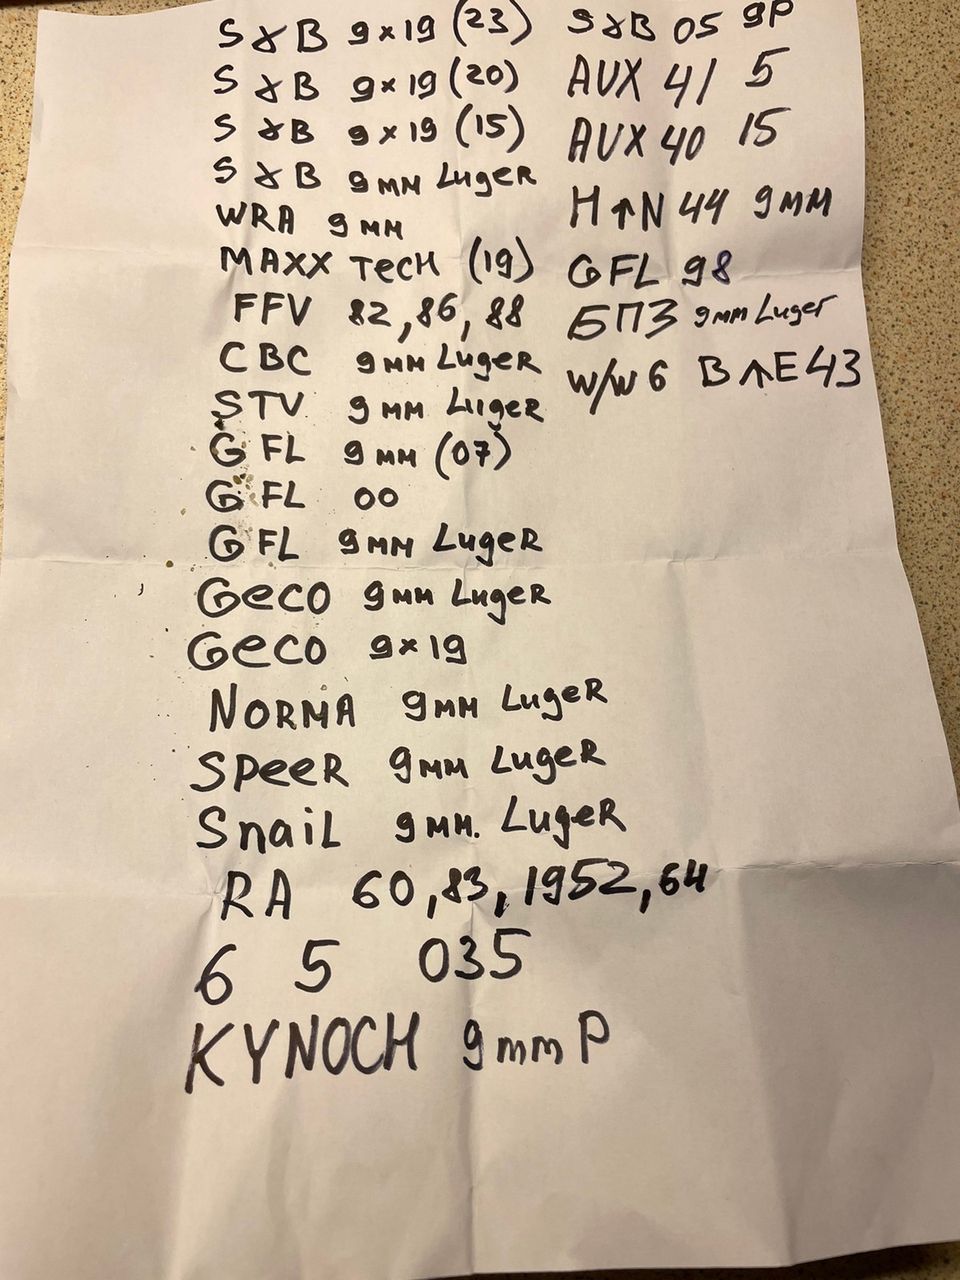 S&B 9x19 (23)
S&B 9x19 (20)
S&B 9x19 (15)
S&B 9mm LugeR
WRA 9mm
MAXX TecH (19)
FFV 82,86,88
CBC 9mm LugeR
STV 9mm LugeR
GFL 9mm (07)
GFL 00
GFL 9mm LugeR
Geco 9mm LugeR
Geco 9x19
NORMA 9mm LugeR
SpeeR 9mm LugeR
SnaiL 9mm. LugeR
RA 60,83,1952,64
6 5 035
KYNOCH 9mm P
S&B 05 9P
AUX 41 5
AUX 40 15
H↑N 44 9mm
GFL 98
БПЗ 9mm Luger
W/W 6 B↑E 43